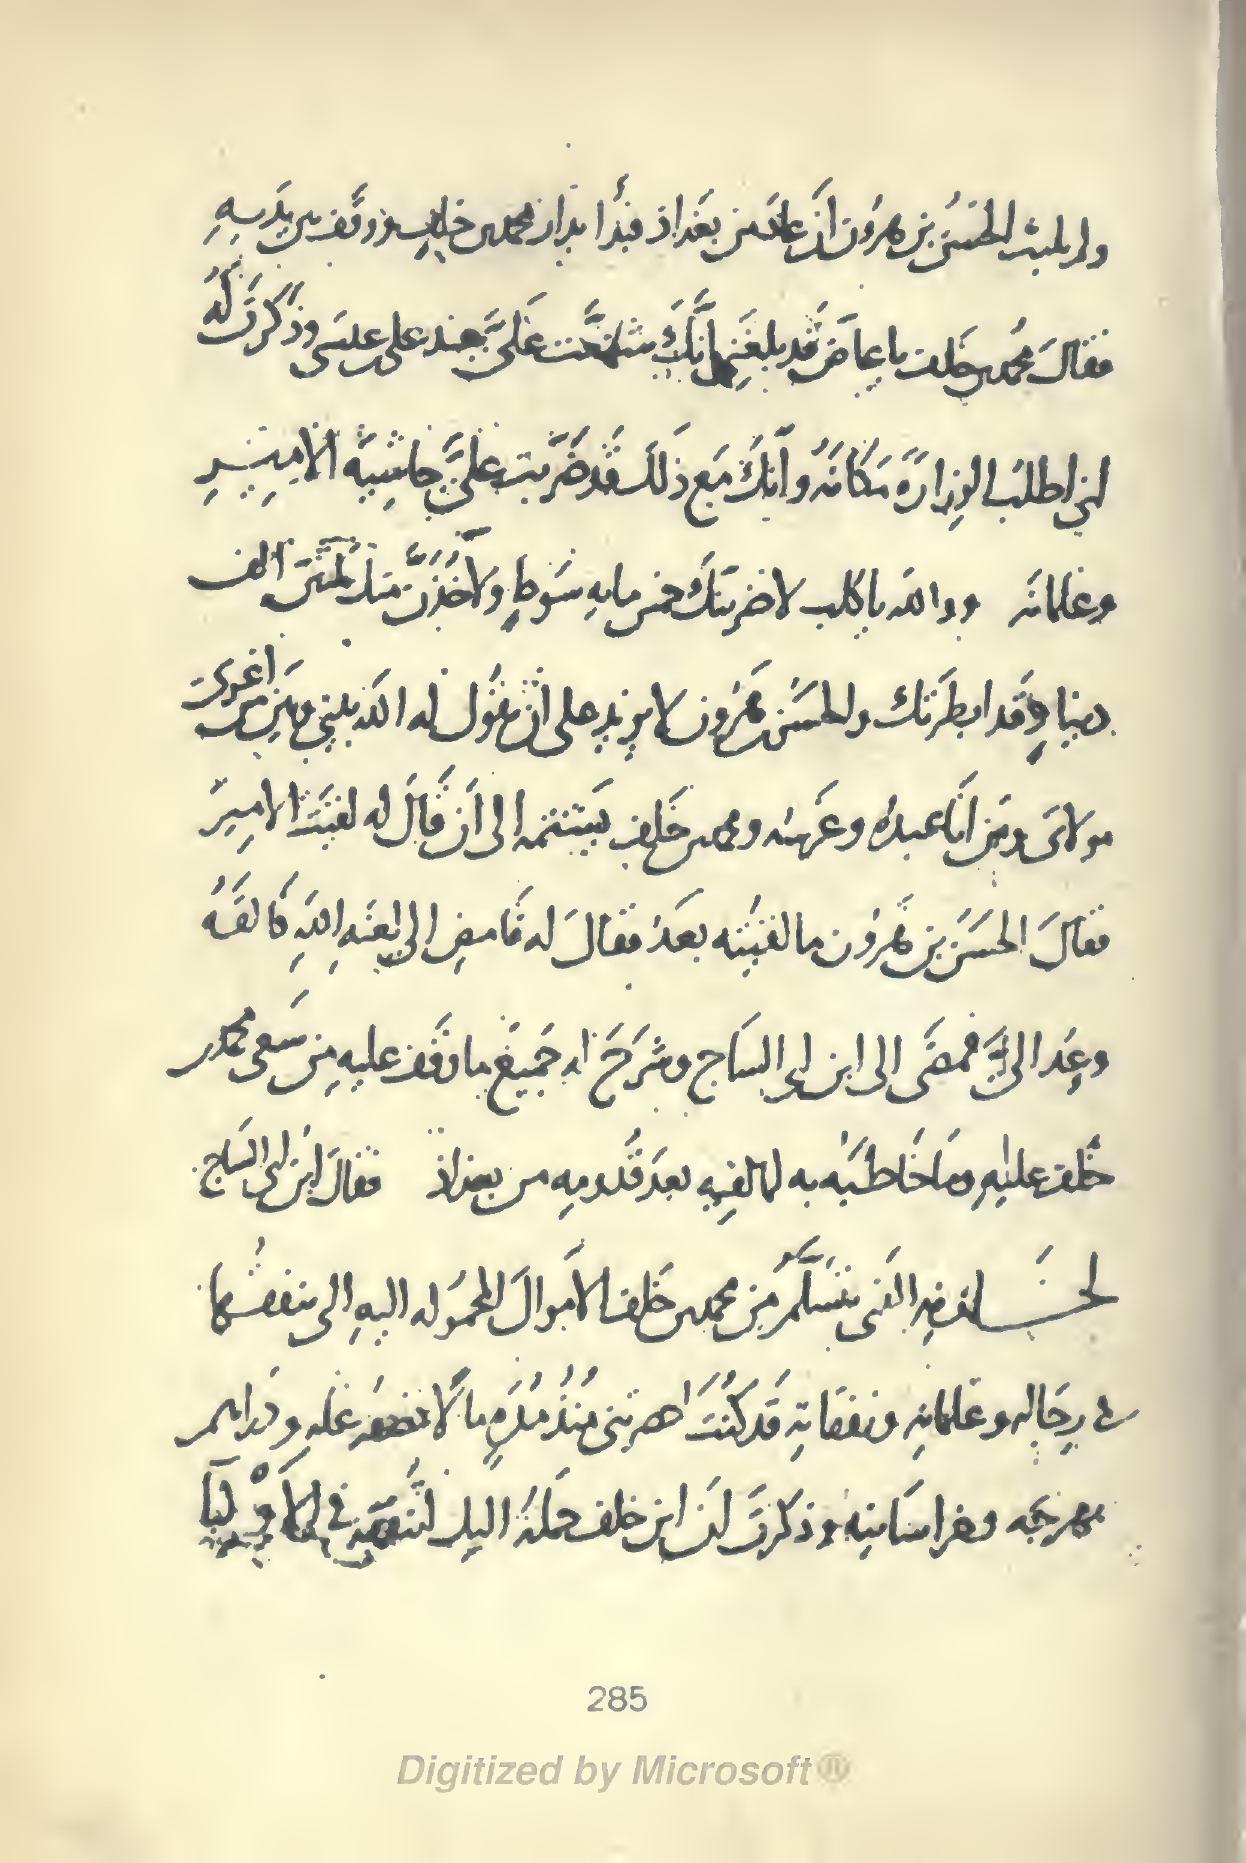 ولم يلبث الحسن بن هرون ان عاد من بغداذ فبدأ بدار محمد بن خلف ووقف بين يديه
فقال محمد بن خلف يا قد بلغني انك على بجند على عيسى وذكرت له
اني اطلب الوزارة مكانه وانك مع ذلك قد ضربت علىَّ حاشية الامير
وغلمانه ووالله يا كلب لاضربنك خمس مايه سوط ولاخذن منك الف
دينار فقد ابطرتك والحسن بن هرون لا يزيد على ان يقول له الله بيني وبين من اغرى
مولاى ومن انا عبده وعرسه ومحمد بن خلف يشتمه الى ان قال له لقيت الامير
فقال الحسن بن هرون ما لقيته بعد فقال له فامض الى لعنه الله فالقه
وعد الىَّ فمضى الى ابن ابى الساج وشرح له جميع ما وقف عليه من سعى محمد بن
خلف عليه وما خاطبه به لما لقيه بعد قدومه من بغداذ فقال ابن ابى الساج
من محمد بن خلف الاموال المحموله اليه الى ينفقها
فى رجاله وغلمانه ونفقاته قد كنت منذ مدة ما لا عليه ودراهم
وذكرت ان ابن خلف حمله اليك فى
285
Digitized by Microsoft®